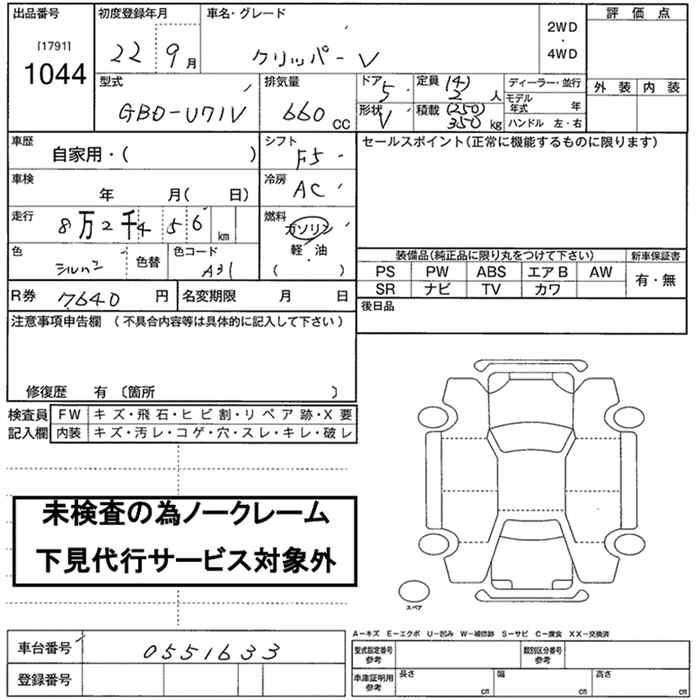 出品番号 初度登録年月 車名・グレード 2WD・4WD 評価点
[1791]
1044 22 9月 クリッパーV
型式 排気量 ドア 5 定員 (4) 2 人 ディーラー・並行 外装 内装
GBD-U71V 660 CC 形状 V 積載 (250) 350 kg モデル年式 年
ハンドル 左・右
車歴 自家用・( ) シフト F5 セールスポイント(正常に機能するものに限ります)
車検 年 月( 日) 冷房 AC
走行 8万2千456 km 燃料 ガソリン
軽・油
( )
色 シルバー 色替 色コード A31 装備品(純正品に限り丸をつけて下さい) 新車保証書
PS PW ABS エアB AW 有・無
R券 7640 円 名変期限 月 日 SR ナビ TV カワ
注意事項申告欄 (不具合内容等は具体的に記入して下さい) 後日品
修復歴 有 〔箇所 〕
検査員 FW キズ・飛石・ヒビ割・リペア跡・X要
記入欄 内装 キズ・汚レ・コゲ・穴・スレ・キレ・破レ
未検査の為ノークレーム
下見代行サービス対象外
スペア
A-キズ E-エクボ U-凹み W-補修跡 S-サビ C-腐食 XX-交換済
車台番号 0551633 型式指定番号 参考 類別区分番号 参考
登録番号 車庫証明用 参考 長さ cm 幅 cm 高さ cm